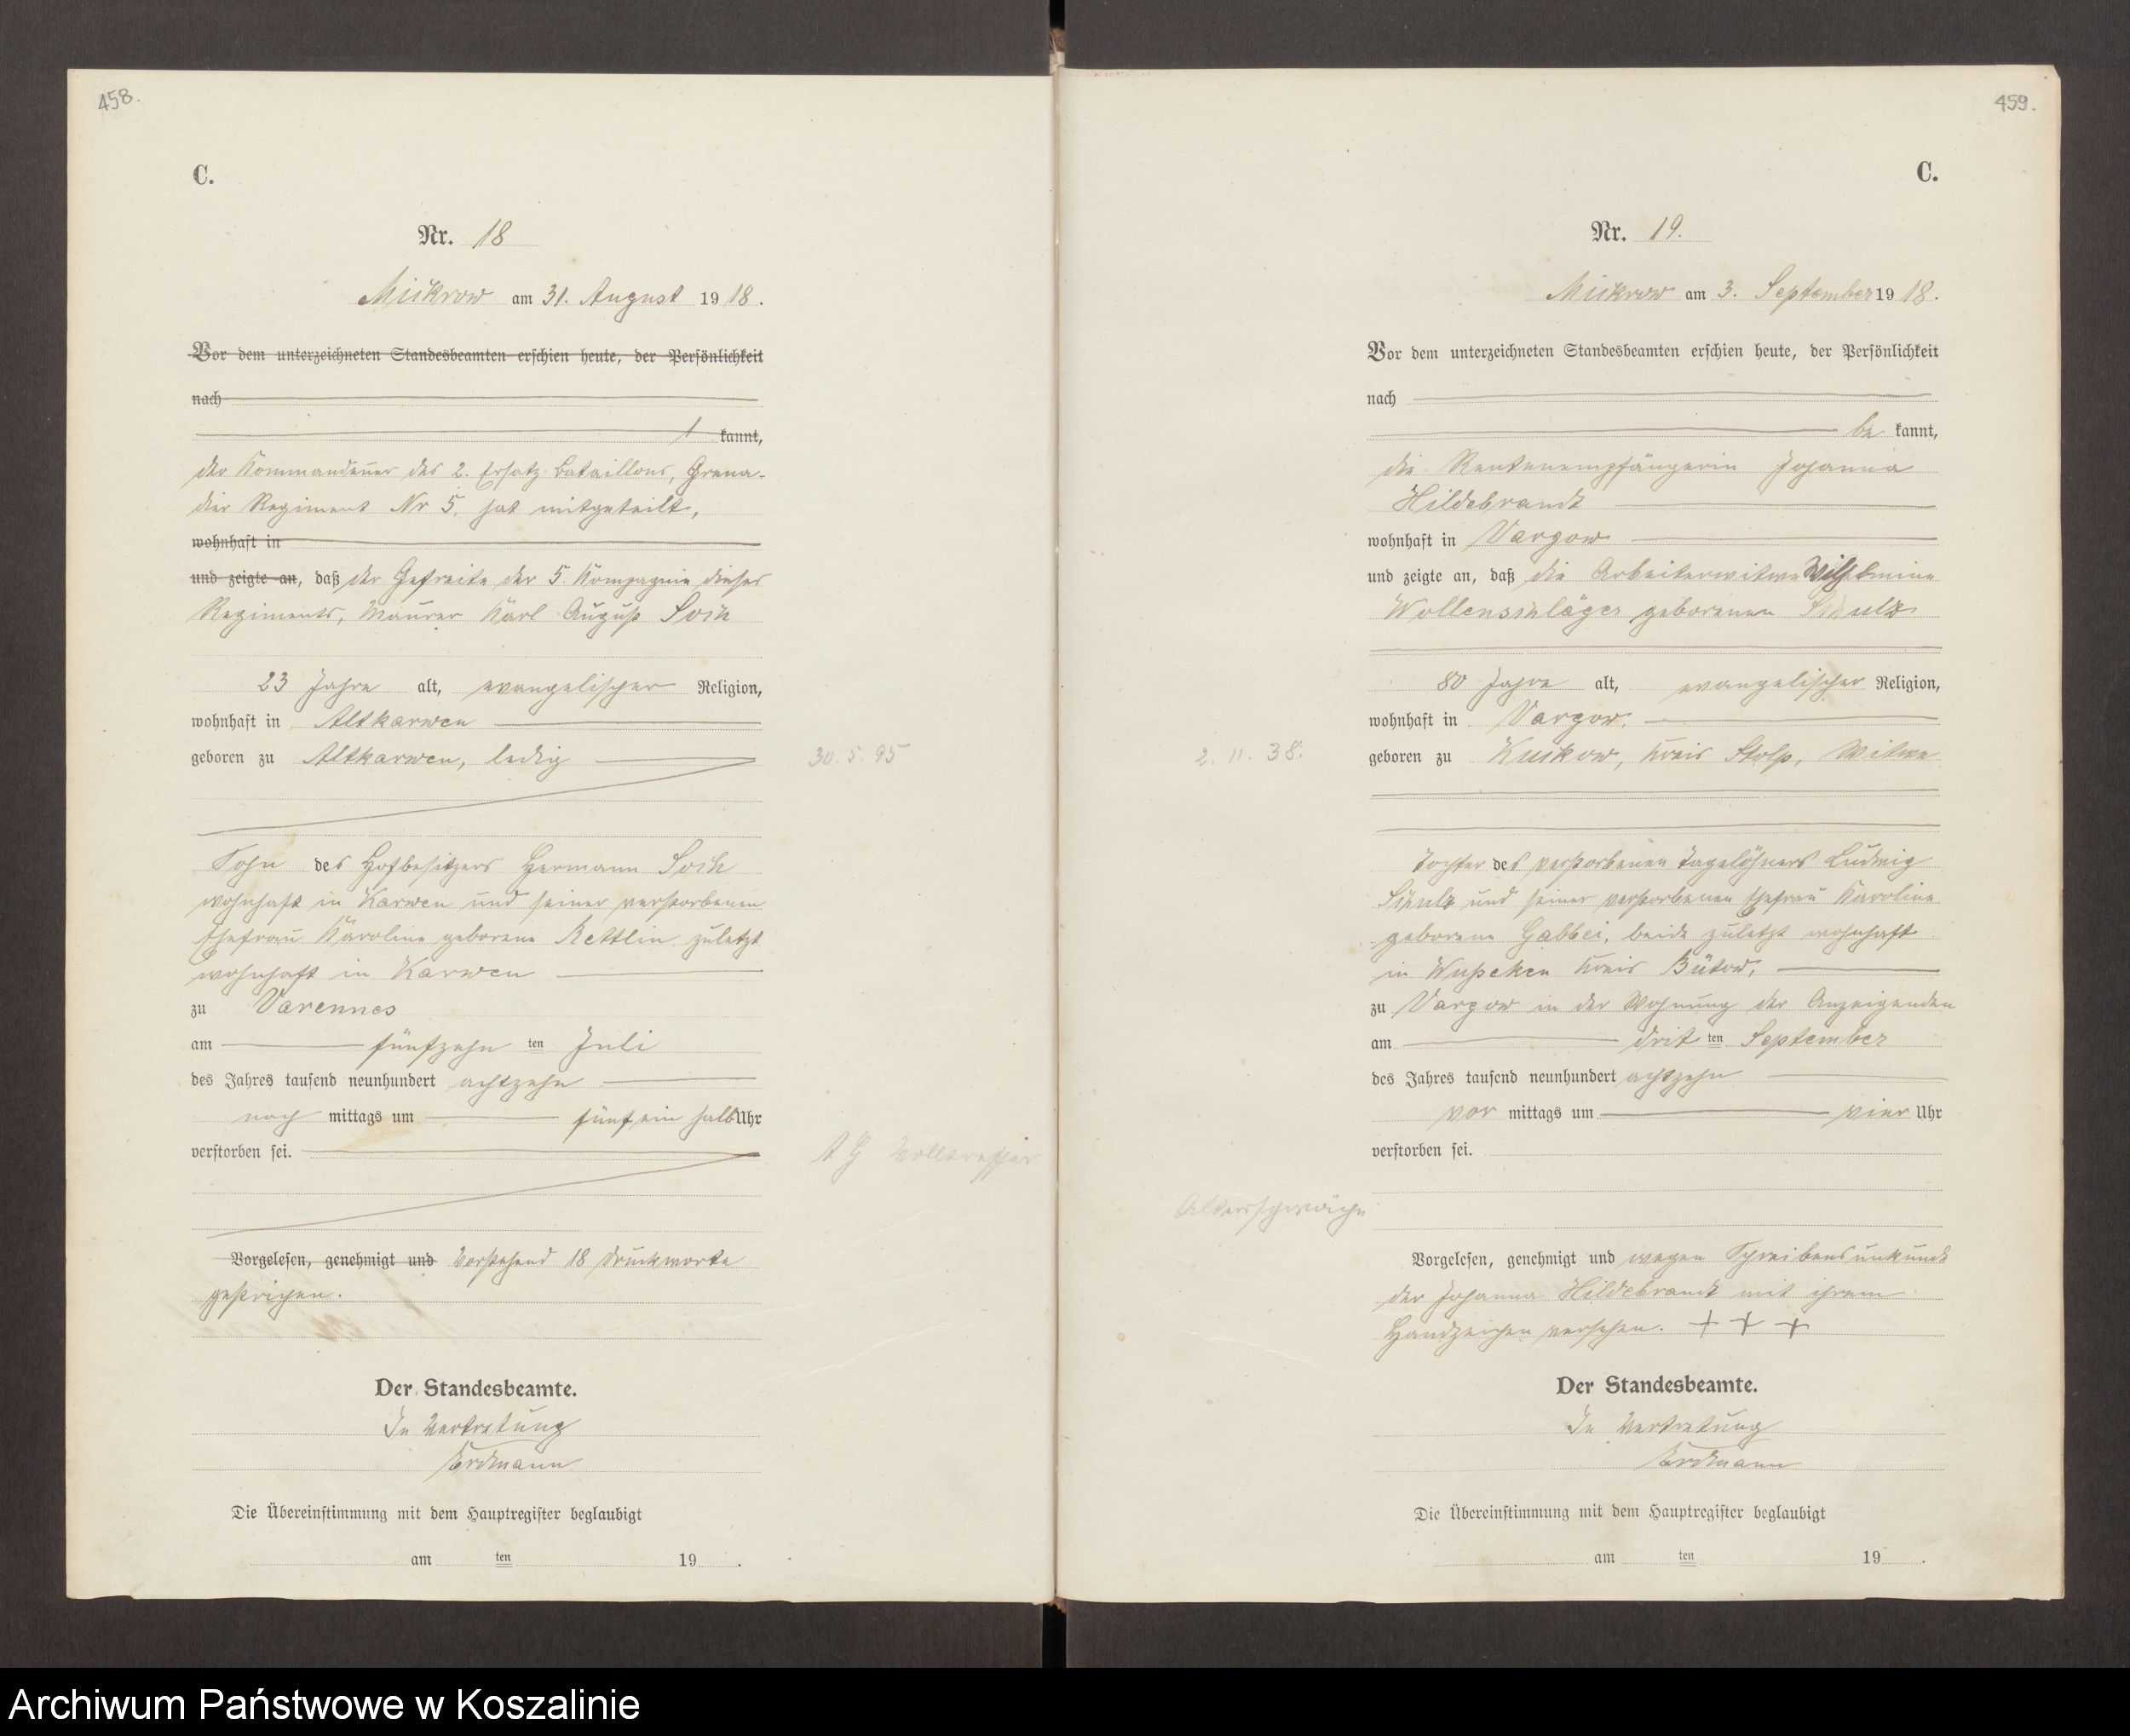 458.
C.
Nr. 18
Mickrow am 31. August 1918.
Vor dem unterzeichneten Standesbeamten erschien heute, der Persönlichkeit
nach
kannt,
der Kommandeur des 2. Ersatz Bataillons, Grena-
dier Regiment Nr 5. hat mitgeteilt,
wohnhaft in
und zeigte an, daß der Gefreite der 5. Kompagnie dieses
Regiments, Maurer Karl August Soik
23 Jahre alt, evangelischer Religion,
wohnhaft in Altkarwen
geboren zu Altkarwen, ledig
30. 5. 95
Sohn des Hofbesitzers Hermann Soik
wohnhaft in Karwen und seiner verstorbenen
Ehefrau Karoline geborene Rettlin zuletzt
wohnhaft in Karwen
zu Varennes
am fünfzehn ten Juli
des Jahres tausend neunhundert achtzehn
nach mittags um fünf ein halb Uhr
verstorben sei.
A G Volltreffer
Vorgelesen, genehmigt und Vorstehend 18 Druckworte
gestrichen.
Der Standesbeamte.
In Vertretung
Erdmann
Die Übereinstimmung mit dem Hauptregister beglaubigt
am ten 19 .
459.
C.
Nr. 19.
Mickrow am 3. September 1918.
Vor dem unterzeichneten Standesbeamten erschien heute, der Persönlichkeit
nach
be kannt,
die Rentenempfängerin Johanna
Hildebrandt
wohnhaft in Vargow
und zeigte an, daß die Arbeiterwitwe Wilhelmine
Wollenschläger geborenen Schulz
80 Jahre alt, evangelischer Religion,
wohnhaft in Vargow.
geboren zu Kuckow, Kreis Stolp, Witwe
2. 11. 38.
Tochter des verstorbenen Tagelöhners Ludwig
Schulz und seiner verstorbenen Ehefrau Karoline
geborene Gabbei, beide zuletzt wohnhaft
in Wusseken Kreis Bütow,
zu Vargow in der Wohnung der Anzeigenden
am drit ten September
des Jahres tausend neunhundert achtzehn
vor mittags um vier Uhr
verstorben sei.
Altersschwäche
Vorgelesen, genehmigt und wegen Schreibensunkunde
der Johanna Hildebrandt mit ihrem
Handzeichen versehen. + + +
Der Standesbeamte.
In Vertretung
Erdmann
Die Übereinstimmung mit dem Hauptregister beglaubigt
am ten 19 .
Archiwum Państwowe w Koszalinie